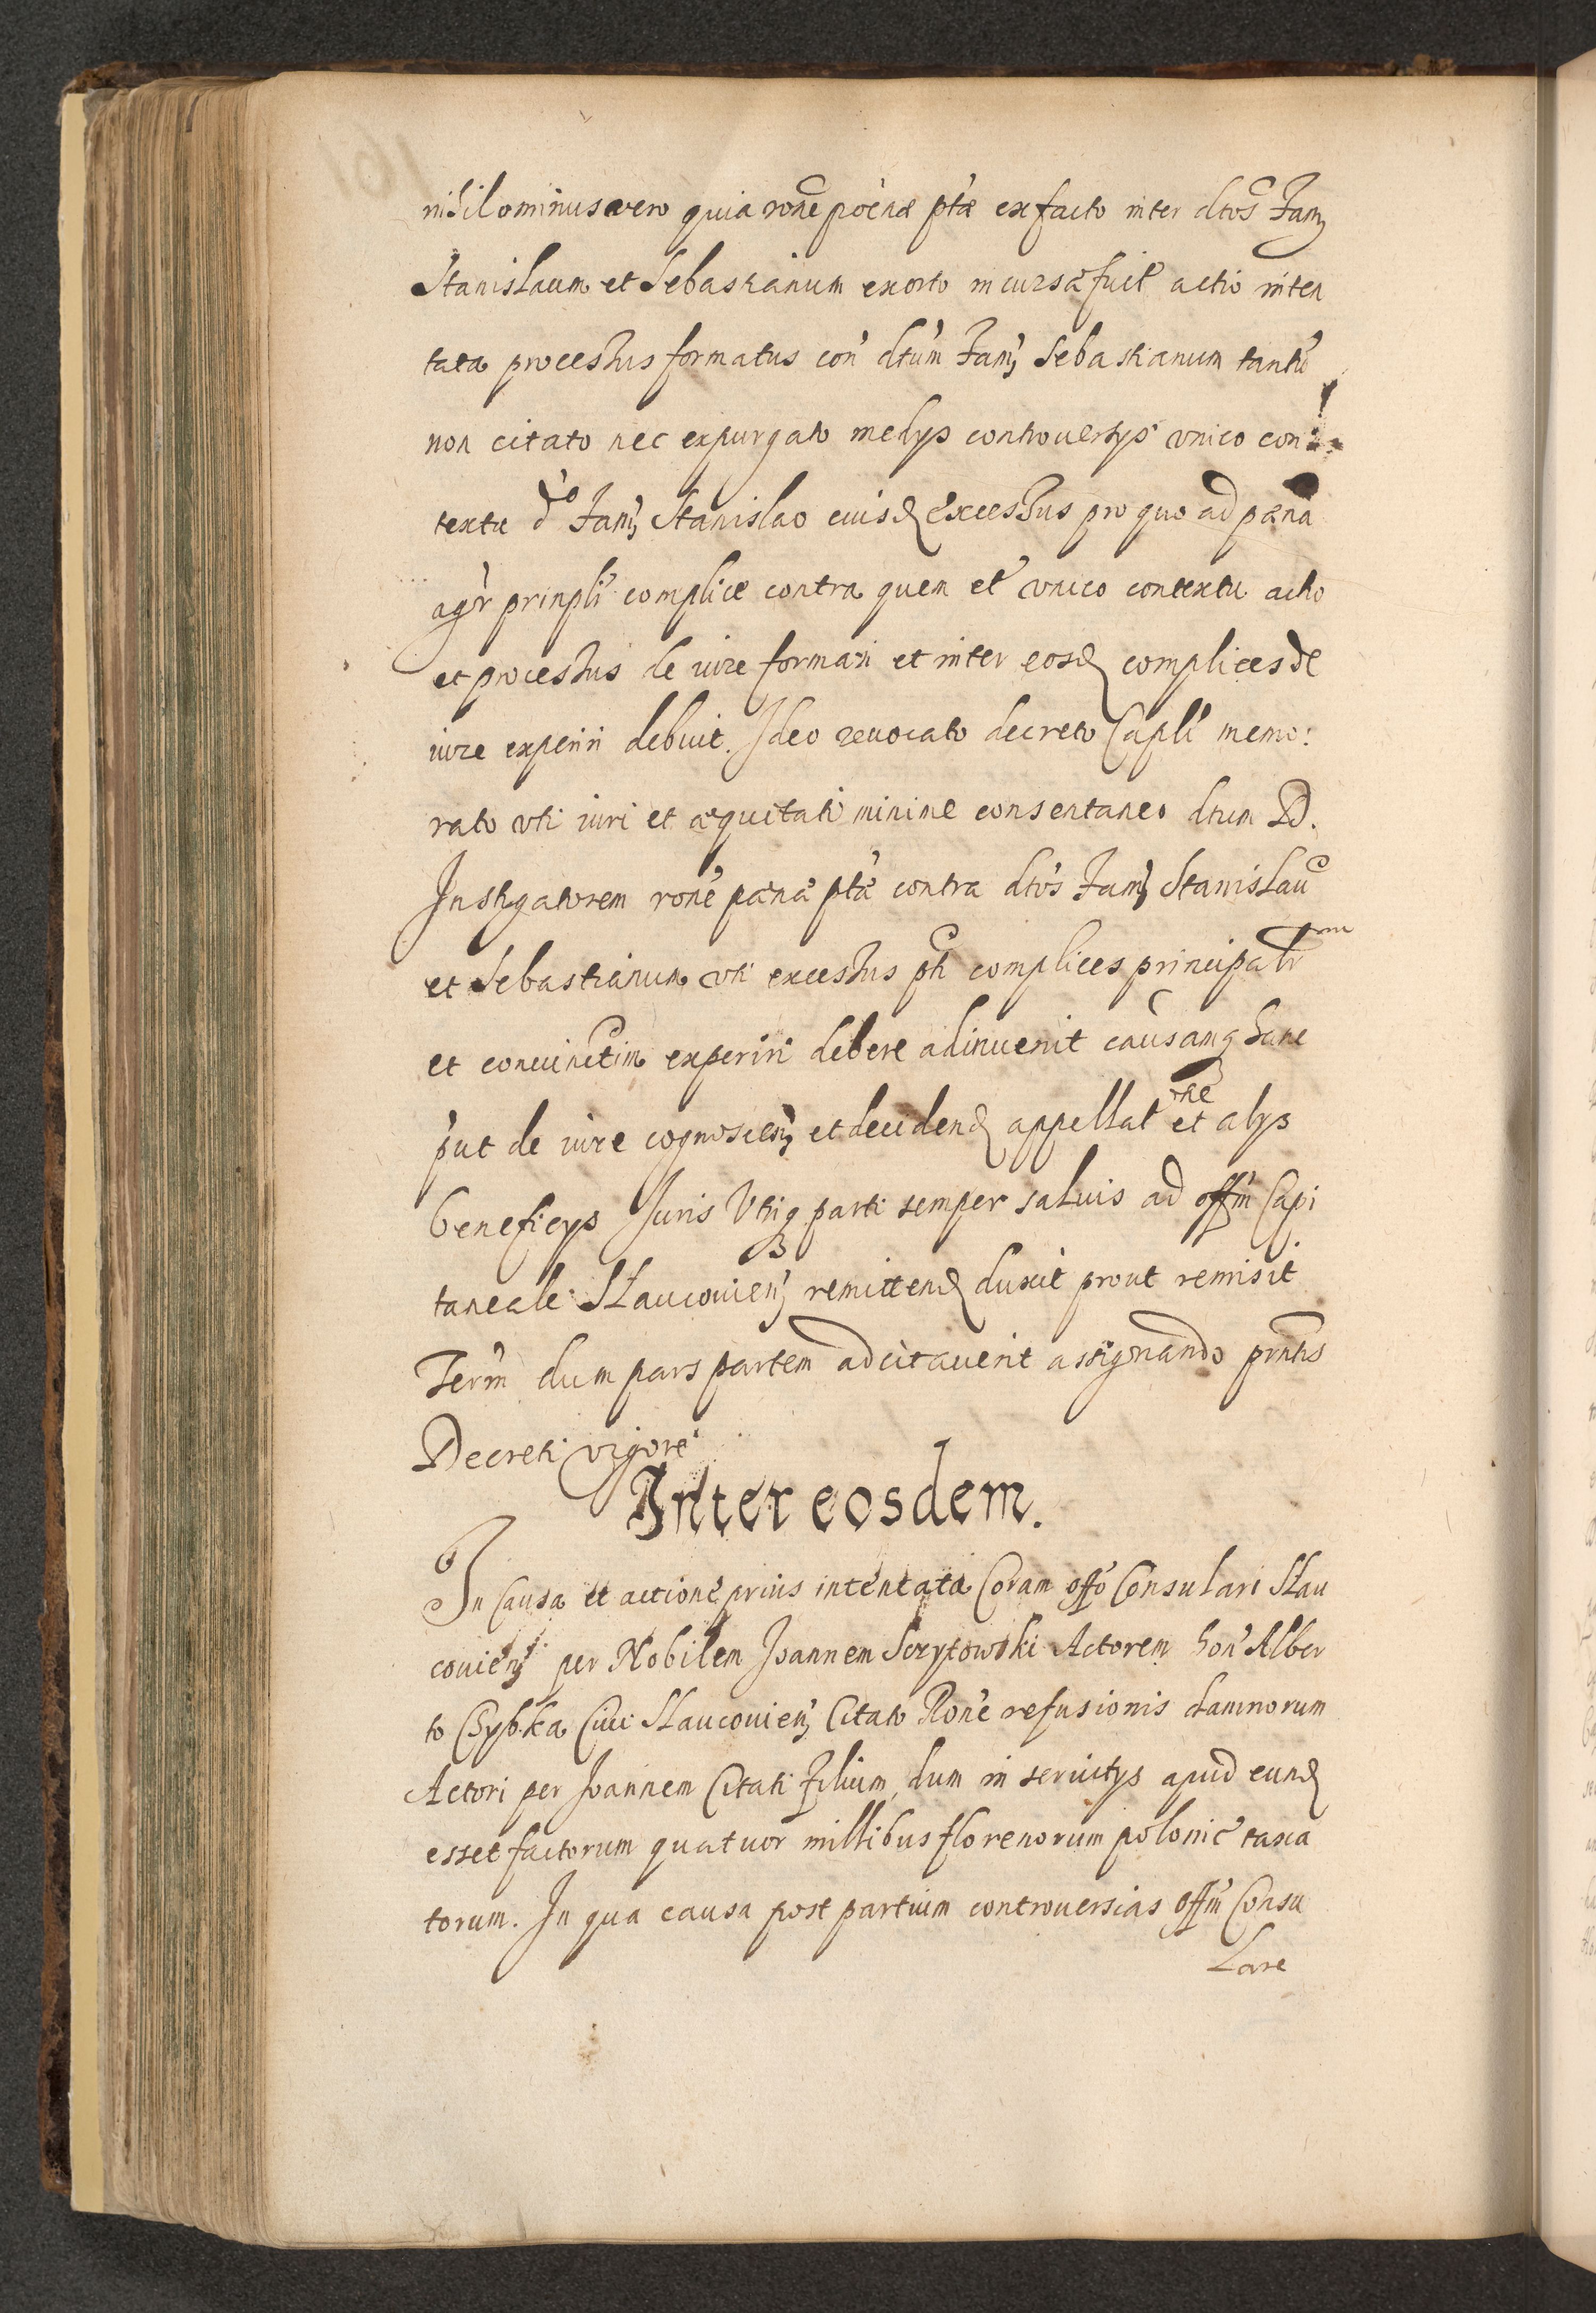 nihilominus vero quia rone poenae ptae ex facto inter dtos Fam
Stanislaum et Sebastianum exorto incursae fuit actio inten
tata processus formatus con dtum Fam Sebastianum tantu
non citato nec expurgato medys controuersys vnico con
textu do Fam Stanislao eiusd excessus pro quo ad paena
agr prinpli complice contra quem et vnico contextu actio
et processus de iure formari et inter eosd complices de
iure experiri debuit. Ideo reuocato decreto Capli memo:
rato vti iuri et aequitati minime consentaneo dtum D.
Instigatorem rone paena pta contra dtos Fam Stanislau
et Sebastianum vti excessus pti complices principalr
et conuinctim experiri debere adinuenit causamq hanc
put de iure cognoscen et decidend appellatone et alys
beneficys Iuris Utriq parti semper saluis ad offm Capi
taneale Slauconien remittend duxit prout remisit
Term dum pars partem adcitauerit assignando pntis
Decreti vigore
Inter eosdem.
In Causa et actione prius intentata Coram offo Consulari Slau
couien per Nobilem Joannem Scrytowski Actorem hon Alber
to Chybka Ciui Slaucouien Citato Rone refusionis damnorum
Actori per Joannem Citati Filium, dum in seruitys apud eund
esset factorum quatuor millibus florenorum polonic taxa
torum. In qua causa post partium controuersias offm Consu
lare